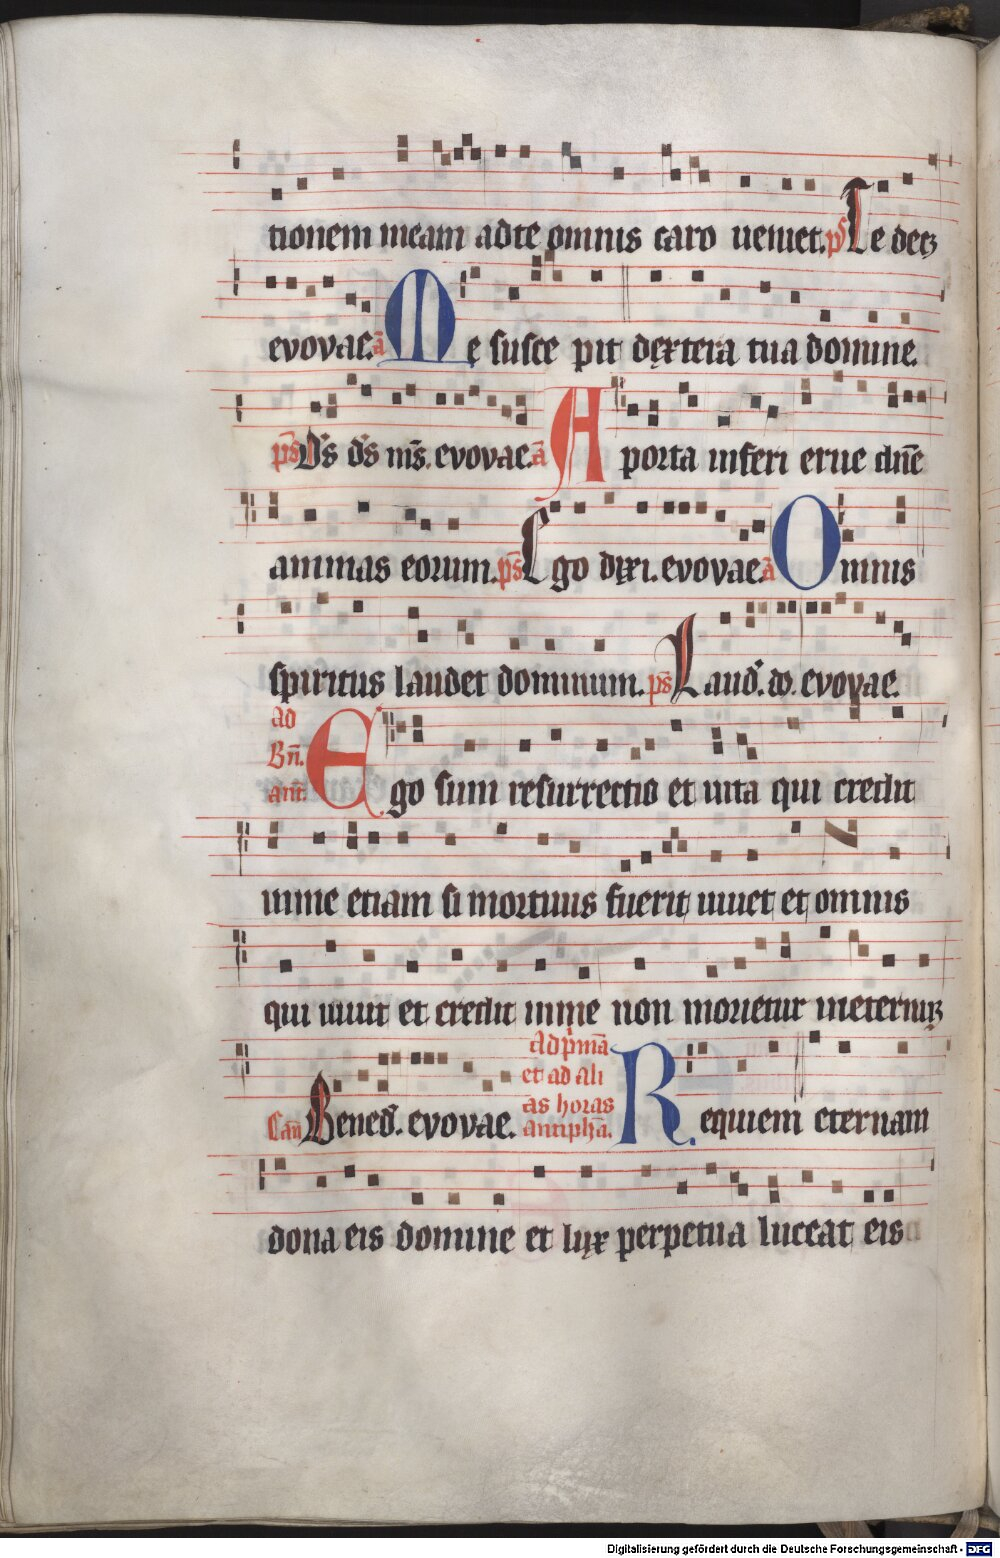 tionem meam adte omnis caro veniet. ps Te decz
evovae. a Me susce pit dextera tua domine.
ps Ds ds ms. evovae. a A porta inferi erue dne
animas eorum. ps Ego dixi. evovae. a Omnis
spiritus laudet dominum. ps Laud. do. evovae.
ad
Bn.
ant. Ego sum resurrectio et vita qui credit
inme etiam si mortuus fuerit vivet et omnis
qui vivit et credit inme non morietur ineternuz
Can Bened. evovae. Adpma
et ad ali
as horas
antipha. Requiem eternam
dona eis domine et lux perpetua luceat eis
Digitalisierung gefördert durch die Deutsche Forschungsgemeinschaft - DFG